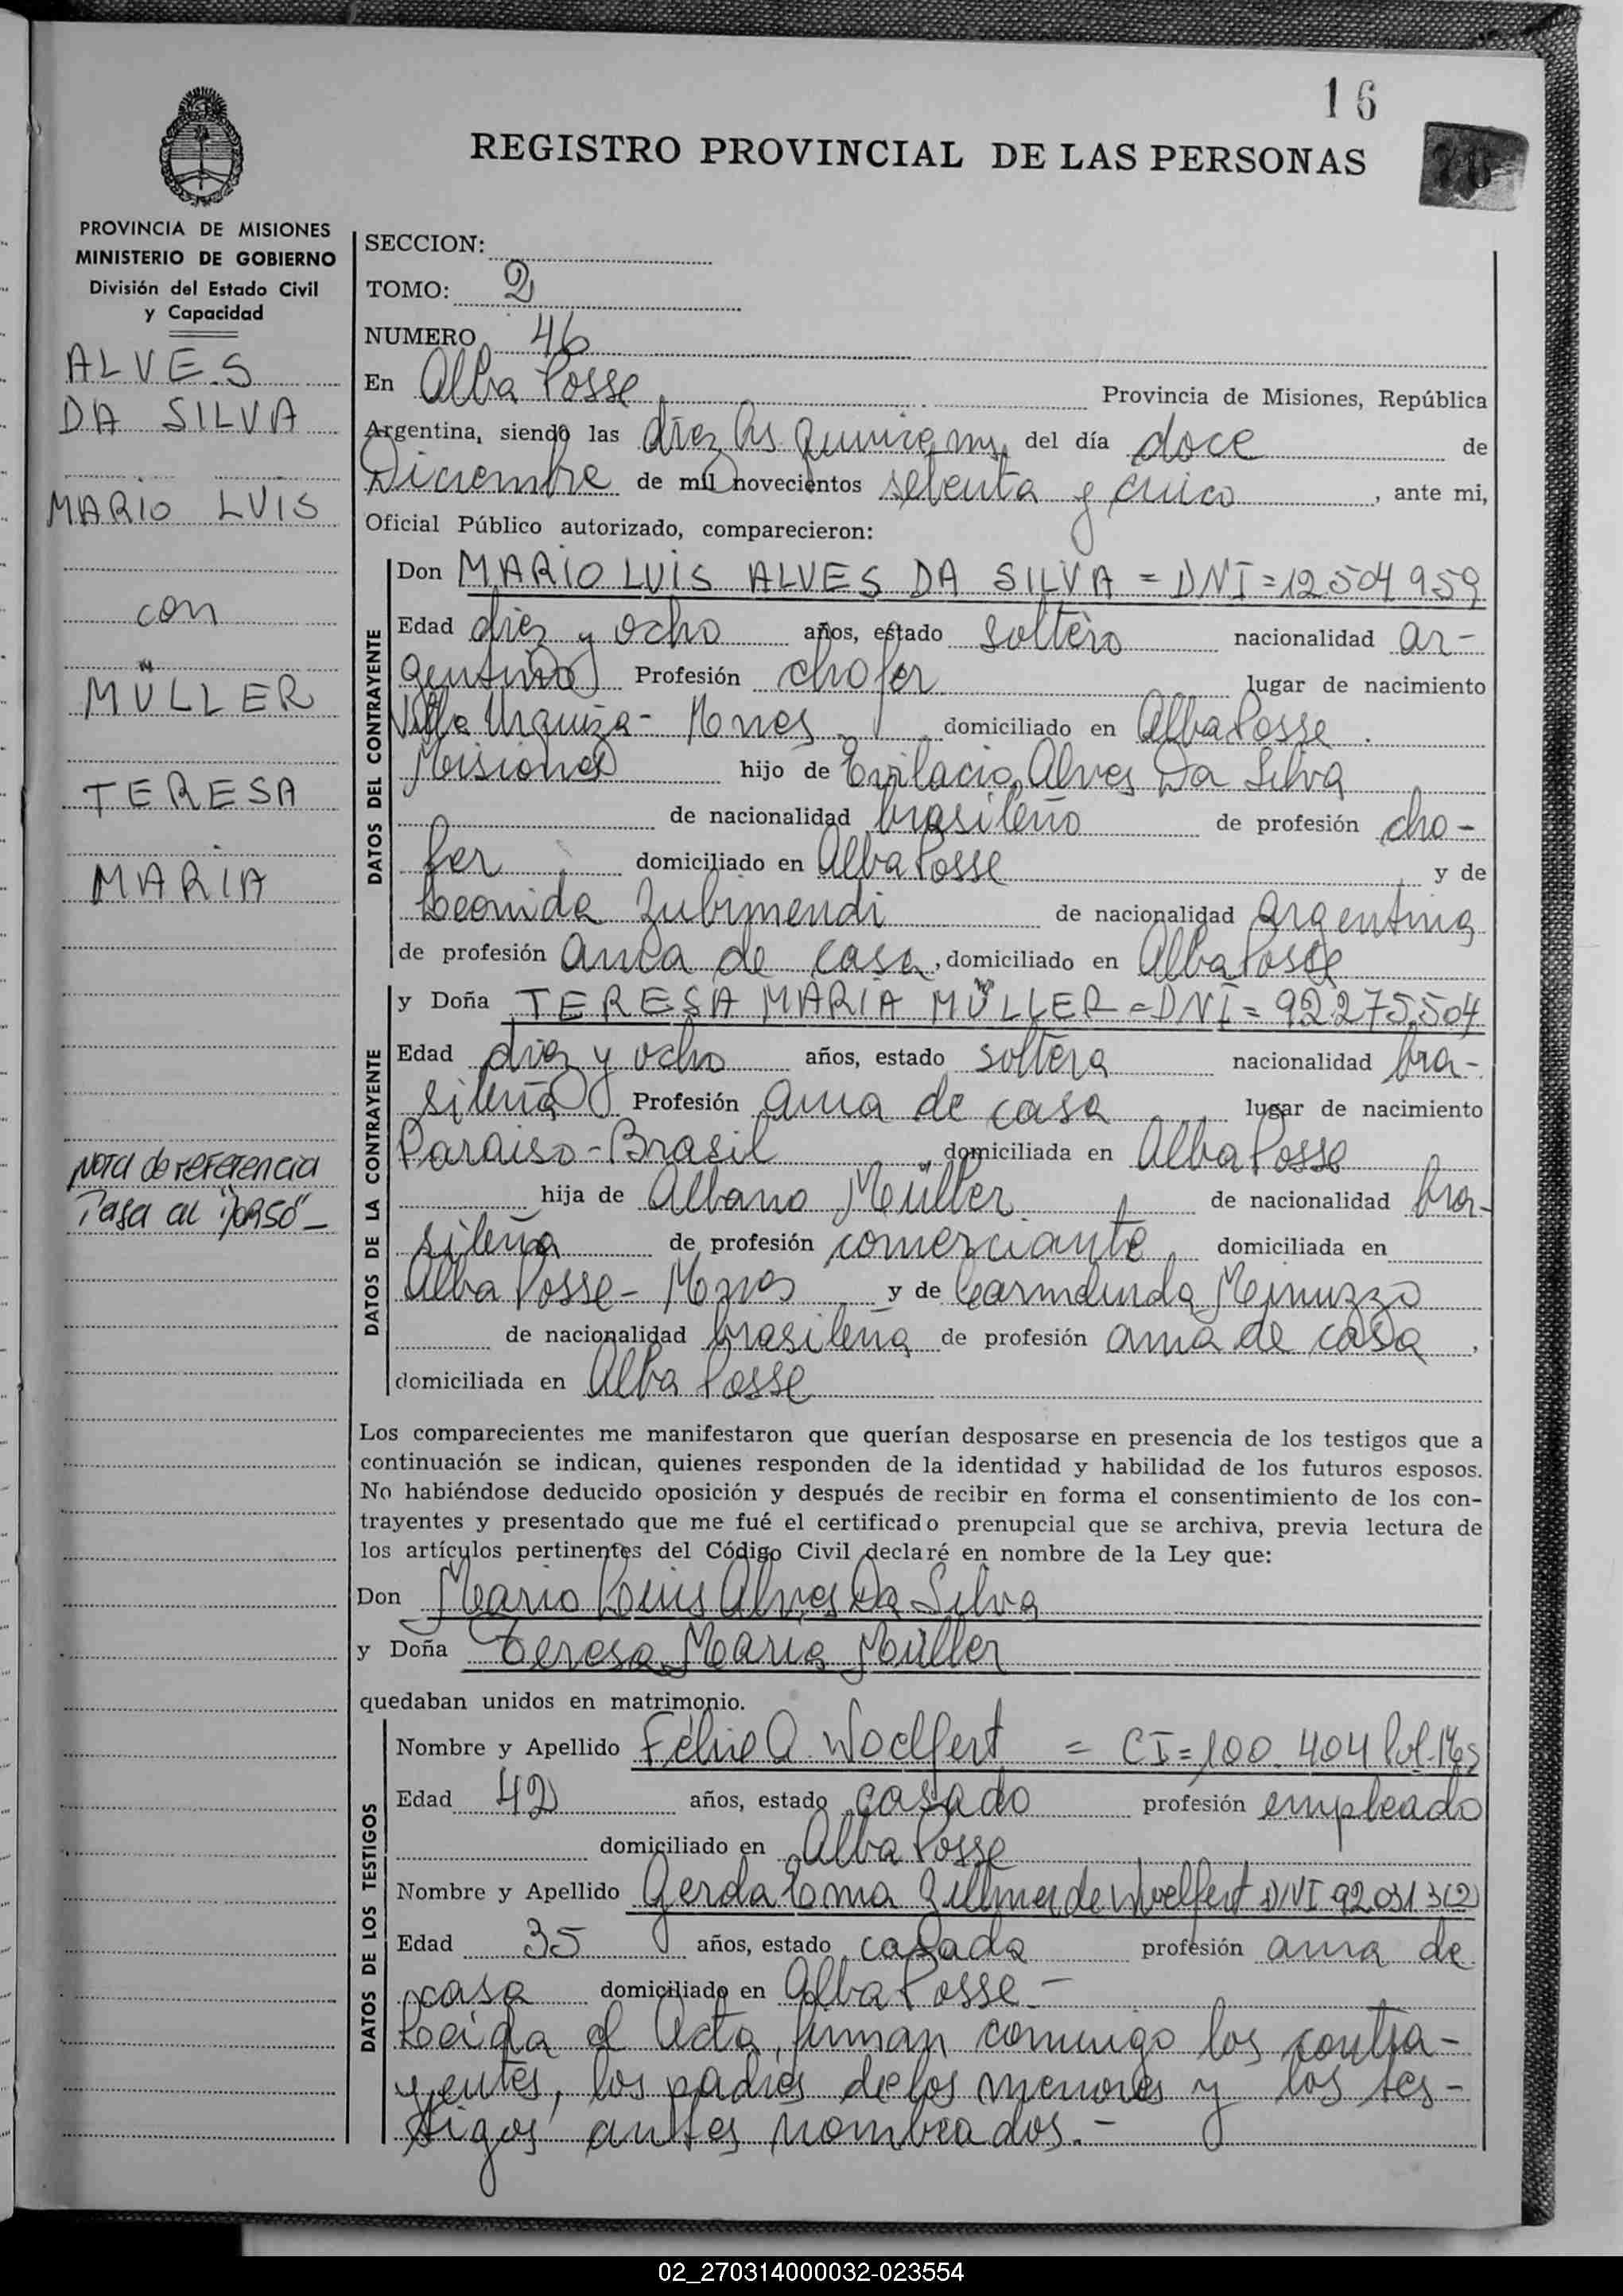 16
REGISTRO PROVINCIAL DE LAS PERSONAS
PROVINCIA DE MISIONES
MINISTERIO DE GOBIERNO
División del Estado Civil
y Capacidad
ALVES
DA SILVA
MARIO LUIS
con
MÜLLER
TERESA
MARIA
Nota de referencia
Pasa al "dorso" -
SECCION:
TOMO: 2
NUMERO 46
En Alba Posse Provincia de Misiones, República
Argentina, siendo las diez hs quince ms, del día doce de
Diciembre de mil novecientos setenta y cinco, ante mi,
Oficial Público autorizado, comparecieron:
DATOS DEL CONTRAYENTE
Don MARIO LUIS ALVES DA SILVA = DNI = 12.504.959
Edad diez y ocho años, estado soltero nacionalidad ar-
gentino Profesión chofer lugar de nacimiento
Villa Urquiza - Mnes domiciliado en Alba Posse
Misiones hijo de Alves Da Silva
de nacionalidad brasileño de profesión cho-
fer domiciliado en Alba Posse y de
Leonida Zubimendi de nacionalidad argentina
de profesión ama de casa, domiciliado en Alba Posse
DATOS DE LA CONTRAYENTE
y Doña TERESA MARIA MÜLLER = DNI = 92.275.504
Edad diez y ocho años, estado soltera nacionalidad bra-
sileña Profesión ama de casa lugar de nacimiento
Paraiso - Brasil, domiciliada en Alba Posse
hija de Albano Müller de nacionalidad bra-
sileña de profesión comerciante, domiciliada en
Alba Posse - Mnes y de
de nacionalidad brasileña de profesión ama de casa,
domiciliada en Alba Posse
Los comparecientes me manifestaron que querían desposarse en presencia de los testigos que a
continuación se indican, quienes responden de la identidad y habilidad de los futuros esposos.
No habiéndose deducido oposición y después de recibir en forma el consentimiento de los con-
trayentes y presentado que me fué el certificado prenupcial que se archiva, previa lectura de
los artículos pertinentes del Código Civil declaré en nombre de la Ley que:
Don Mario Luis Alves Da Silva
y Doña Teresa Maria Müller
quedaban unidos en matrimonio.
DATOS DE LOS TESTIGOS
Nombre y Apellido Woelfert = CI = 100.404 Pol. Mes
Edad 42 años, estado casado profesión empleado
domiciliado en Alba Posse
Nombre y Apellido Gerda de Woelfert DNI 92.031.3(2)
Edad 35 años, estado casada profesión ama de
casa domiciliado en Alba Posse -
Leida el Acta, firman conmigo los contra-
yentes, los padres de los menores y los tes-
tigos antes nombrados. -
02_270314000032-023554